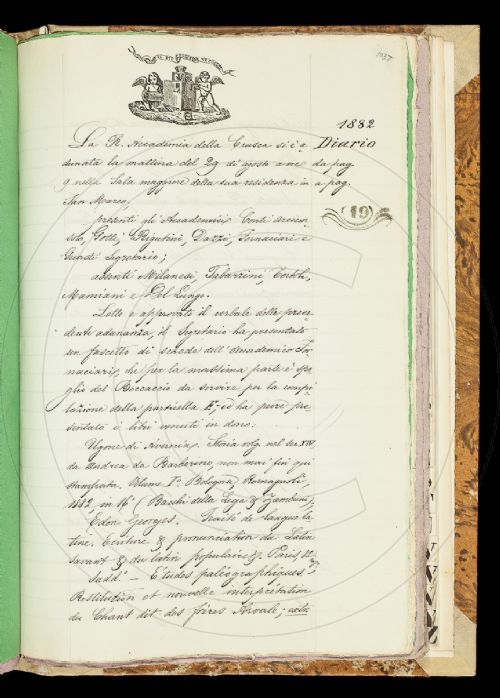 1037
1882
Diario
da pag.
a pag.
(19)
La R. Accademia della Crusca si è a
dunata la mattina del 29 di agosto a ore
9 nella Sala maggiore della sua residenza in
San Marco,
presenti gli Accademici Conti
Gotti, Rigutini, Dazzi, Fornaciari e
Guasti Segretario;
assenti Milanesi, Tabarrini, Tortoli,
Mamiani e Del Lungo.
Letto e approvato il verbale della prece-
dente adunanza, il Segretario ha presentato
un fascetto di schede dell'Accademico For-
naciari, che per la massima parte è spo-
glio del Boccaccio da servire per la compi-
lazione della particella E; ed ha pure pre
sentato i libri venuti in dono:
Ugone di Avernia, Storia volg. nel sec. XIV
da Andrea da Barberino, non mai fin qui
stampata. Volume I.° Bologna, Romagnoli,
1882, in 16° (Bacchi della Lega & Zambrini).
Edon Georges. Traité de langue la
tine. Ecriture & prononciation du Latin
savant & du latin populaire &. Paris
Sudd.° — Études paléographiques.
Restitution et nouvelle interprétation
du Chant dit des frères Arvales;